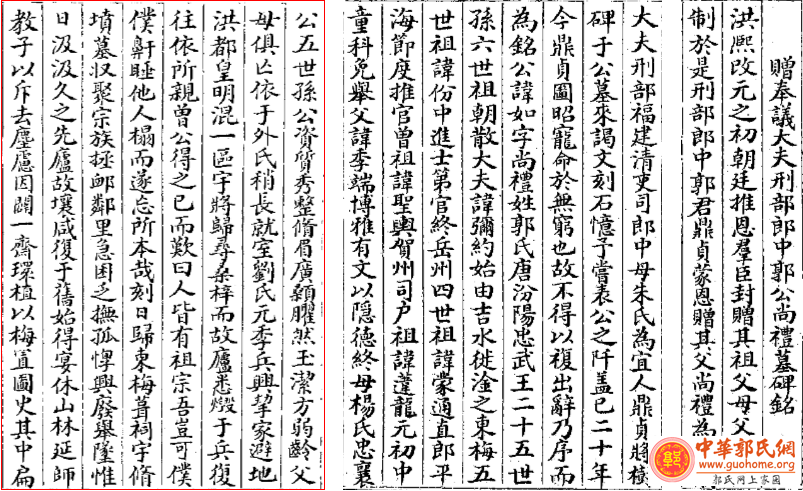 贈奉議大夫刑部郎中郭公尚禮墓碑銘
洪熈改元之初朝廷推恩羣臣封贈其祖父母父
制於是刑部郎中郭君鼎貞蒙恩贈其父尚禮為
大夫刑部福建清吏司郎中母朱氏為宜人鼎貞將樹
碑于公墓來謁文刻石憶予嘗表公之阡盖已二十年
今鼎貞圖昭寵命於無窮也故不得以複出辭乃序而
為銘公諱如字尚禮姓郭氏唐汾陽忠武王二十五世
孫六世祖朝散大夫諱彌約始由吉水徙淦之東梅五
世祖諱份中進士第官終岳州四世祖諱蒙通直郎平
海節度推官曽祖諱聖與賀州司户祖諱蘧龍元初中
童科免舉父諱季端博雅有文以隱德終母楊氏忠襄
公五世孫公資質秀整脩眉廣顙臞然玉潔方弱齡父
母俱亡依于外氏稍長就室劉氏元季兵興挈家避地
洪都皇明混一區宇將歸尋桑梓而故廬悉燬于兵復
往依所親曽公得之已而歎曰人皆有祖宗吾豈可僕
僕鼾睡他人榻而遂忘所本哉刻日歸東梅葺祠宇脩
墳墓収聚宗族拯邮鄰里急困乏撫孤惸興廢舉墜惟
日汲汲久之先廬故壤咸復于舊始得宴休山林延師
教子以斥去塵慮因闢一齋環植以梅置圖史其中扁
中華郭氏網
www.guohome.org
郭氏网上家園